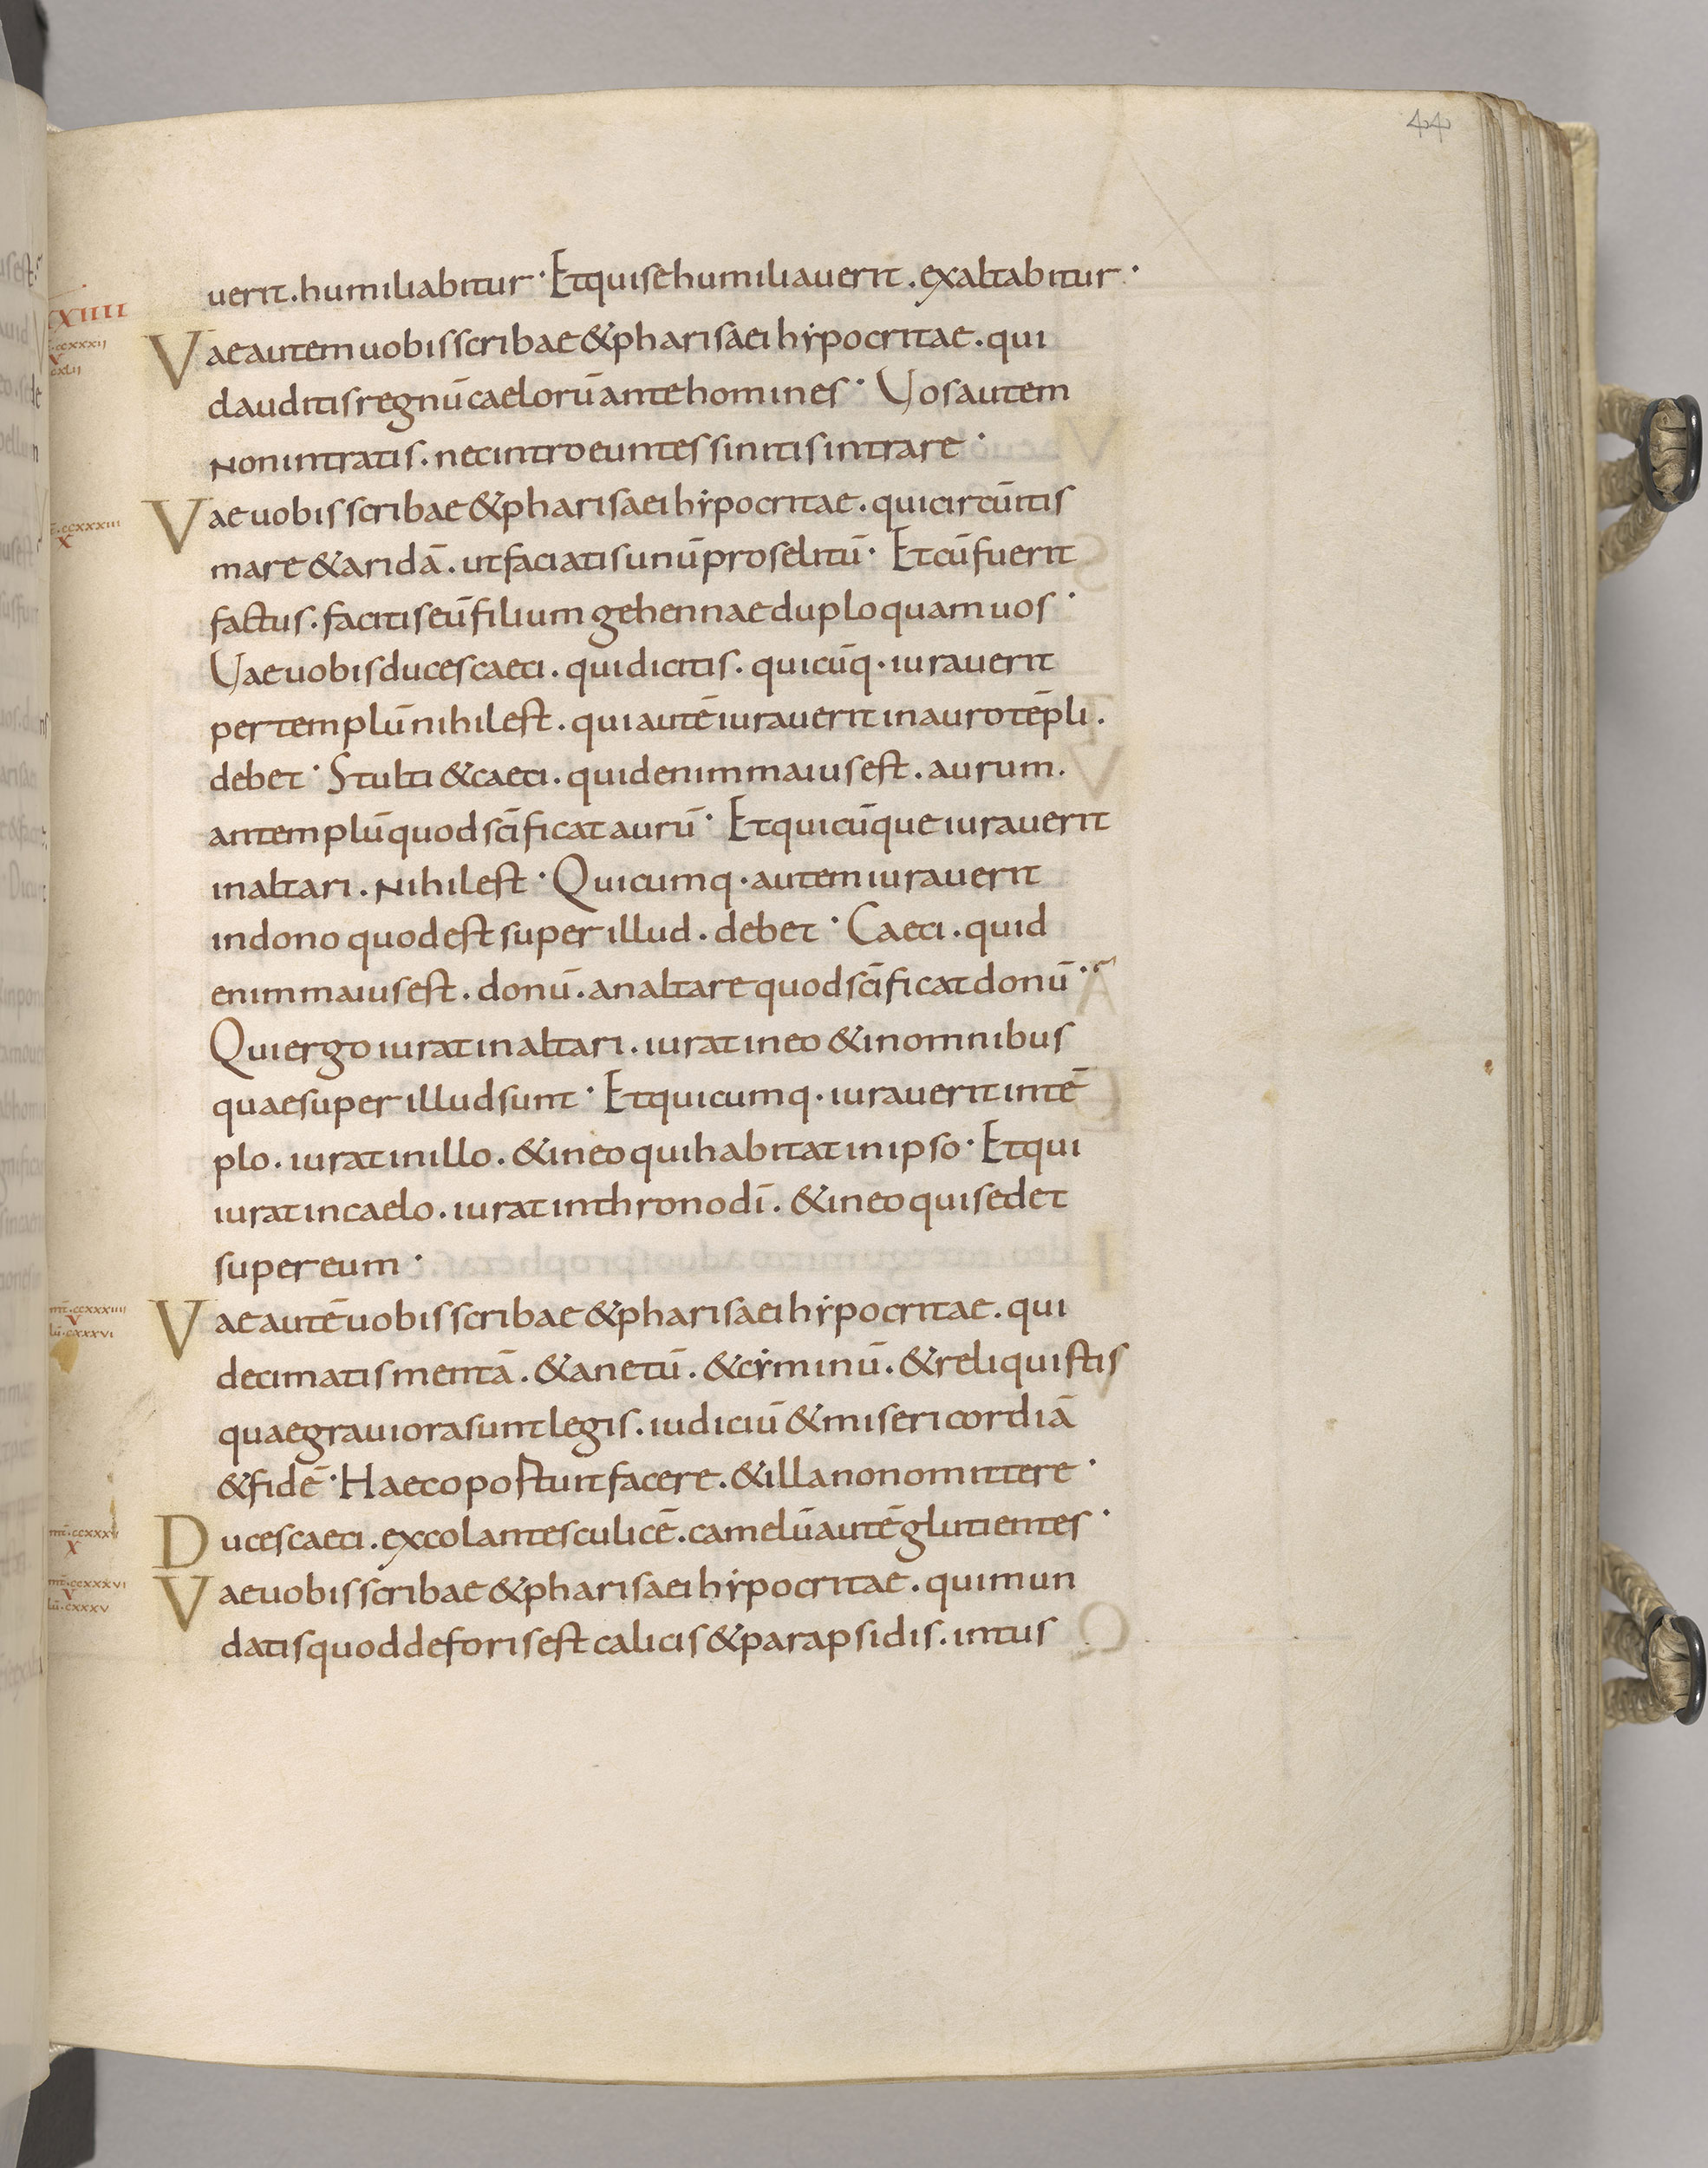 44
uerit. humiliabitur· Et qui se humiliauerit. exaltabitur·
XIIII
Vae autem uobis scribae & pharisaei hẏpocritae. qui
ccxxxii
V
cxlii
clauditis regnū caelorū ante homines· Vos autem
non intratis. nec introeuntes sinitis intrare·
Vae uobis scribae & pharisaei hẏpocritae. qui circūitis
ccxxxiii
X
mare & aridā. ut faciatis unū proselitū· Et cū fuerit
factus. facitis eū filium gehennae duplo quam uos·
Vae uobis duces caeci. qui dicitis. quicūq· iurauerit
per templū nihil est. qui autē iurauerit in auro tēpli.
debet· Stulti & caeci. quid enim maius est. aurum.
an templū quod sc̄ificat aurū· Et quicūque iurauerit
in altari. nihil est· Quicumq· autem iurauerit
in dono quod est super illud. debet· Caeci. quid
enim maius est. donū. an altare quod sc̄ificat donū·
Qui ergo iurat in altari. iurat in eo & in omnibus
quae super illud sunt· Et quicumq· iurauerit in tē
plo. iurat in illo. & in eo qui habitat in ipso· Et qui
iurat in caelo. iurat in throno dī. & in eo qui sedet
super eum·
Vae autē uobis scribae & pharisaei hẏpocritae. qui
mt̄·ccxxxiiii
V
lū·cxxxvi
decimatis mentā. & anetū. & cẏminū. & reliquistis
quae grauiora sunt legis. iudiciū & misericordiā
& fidē· Haec oportuit facere. & illa non omittere·
Duces caeci. excolantes culicē. camelū autē glutientes·
mt̄·ccxxxv
X
Vae uobis scribae & pharisaei hẏpocritae. qui mun
mt̄·ccxxxvi
V
lū·cxxxv
datis quod deforis est calicis & parapsidis. intus